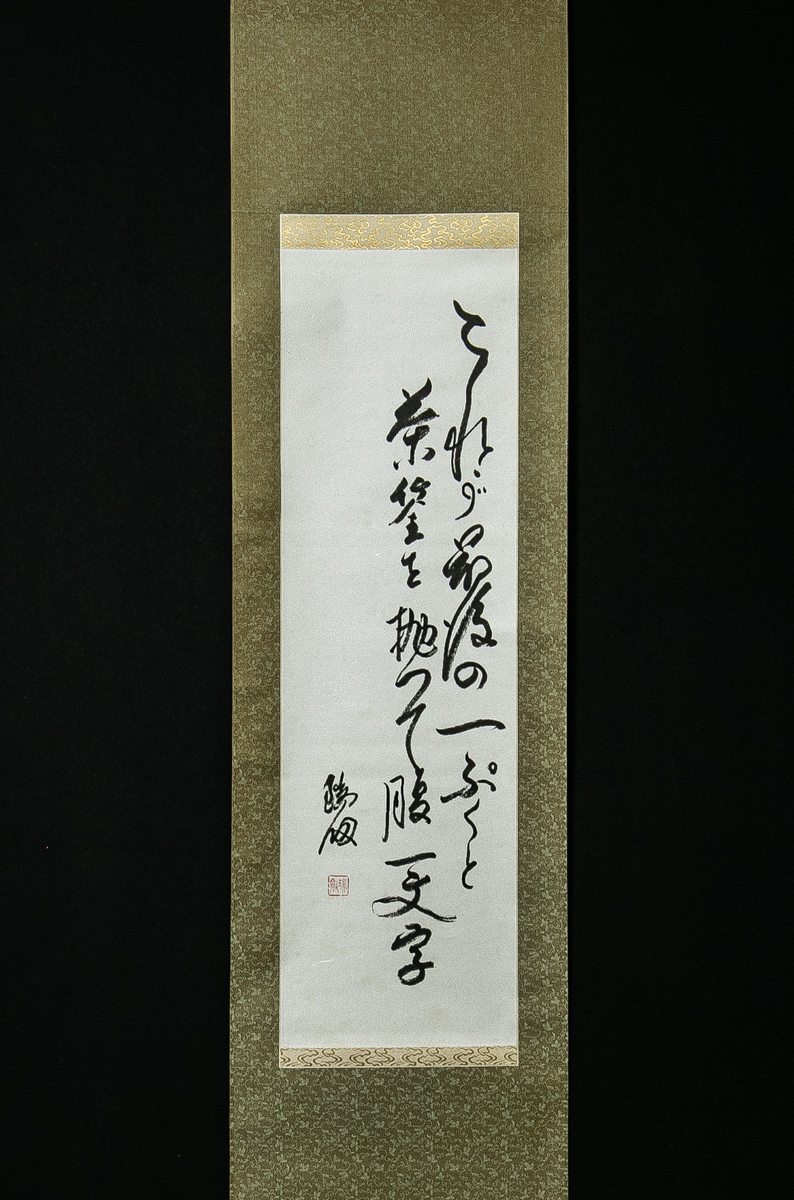 これが最後の一ぷくと
茶筌を抛つて腹一文字
瑞